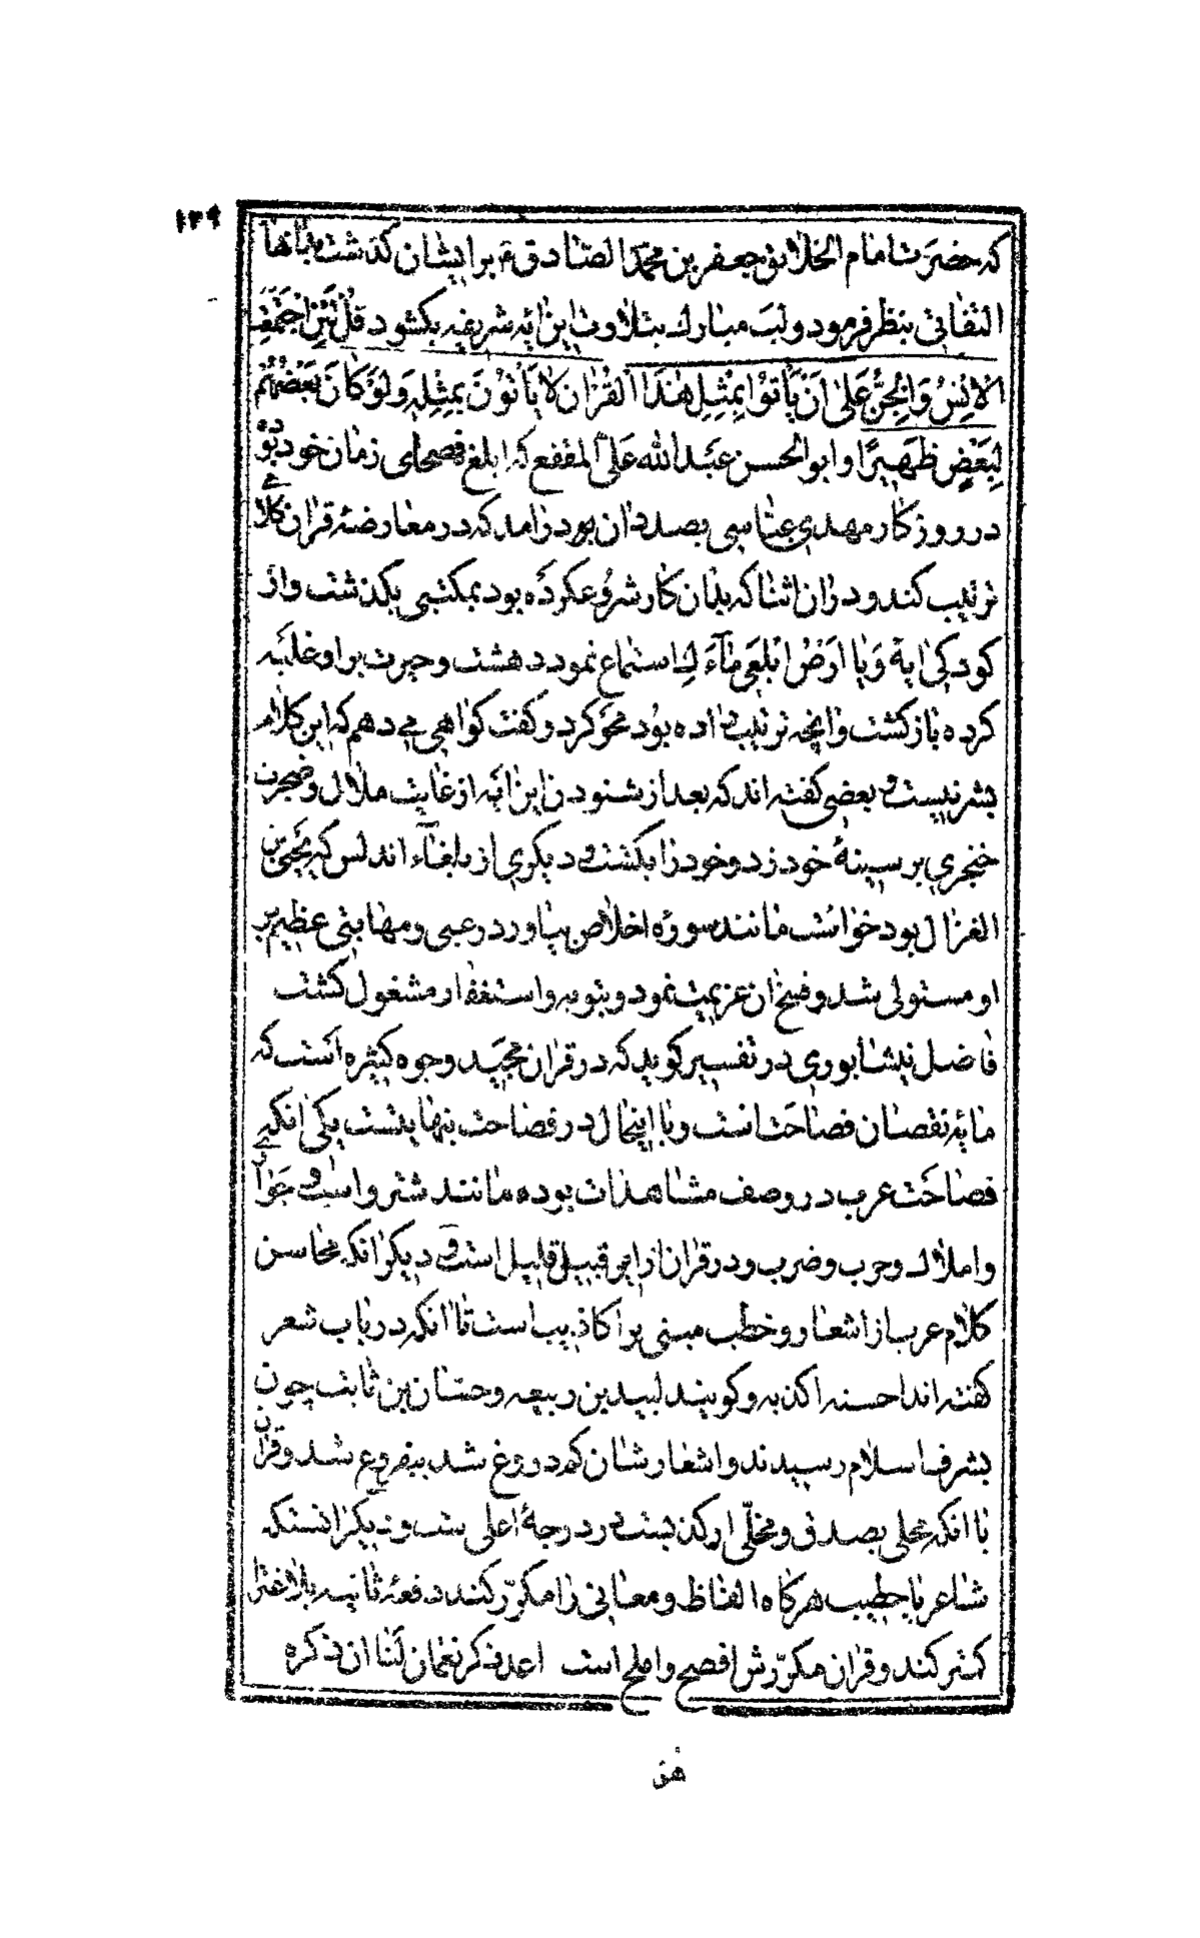 ۱۲۹
که حضرت امام الخلائق جعفر بن محمد الصادق ع بر ایشان کذشت بدانها
التفاتی بنظر فرمود و لب مبارك بتلاوت این ایه شریفه بکشود قُلْ لَئِنِ اجْتَمَعَتِ
الاِنْسُ وَالْجِنُّ عَلیٰ اَنْ یَأتُوْا بِمِثْلِ هٰذَا الْقُرْانِ لَا یَأتُوْنَ بِمِثْلِهٖ وَلَوْ كَانَ بَعْضُهُمْ
لِبَعْضٍ ظَهِیْرًا و ابو الحسن عبد الله علی المقفع که ابلغ فصحای زمان خود بود
در روزکار مهدی عباسی بصدد ان بود در امد که در معارضهٔ قران کلامی
ترتیب کند و در ان اثنا که بدان کار شروع کرده بود بمکتبی بکذشت و از
کودکی ایهٔ وَیَا اَرْضُ ابْلَعِی مَآءَكِ استماع نمود دهشت و حیرت بر او غلبه
کرده بازکشت و انچه ترتیب داده بود محو کرد و کفت کواهی می دهم که این کلام
بشر نیست و بعضی کفته اند که بعد از شنودن این ایه از غایت ملال و ضجرت
خنجری بر سینهٔ خود زد و خود را بکشت و دیکری از بلغآء اندلس که یحیی بن
الغزال بود خواست مانند سوره اخلاص بیاورد رعبی و مهابتی عظیم بر
او مستولی شد و فسخ ان عزیمت نمود و بتوبه و استغفار مشغول کشت
فاضل نیشابوری در تفسیر کوید که در قران مجید وجوه کثیره است که
مایهٔ نقصان فصاحت است و با اینحال در فصاحت بنهایتست یکی انکه
فصاحت عرب در وصف مشاهدات بوده مانند شتر و اسب و جواری
و املاك و حرب و ضرب و در قران از این قبیل قلیل است و دیکر انکه محاسن
کلام عرب از اشعار و خطب مبنی بر اکاذیب است تا انکه در باب شعر
کفته اند احسنه اکذبه و کویند لبید بن ربیعه و حسان بن ثابت چون
بشرف اسلام رسیدند و اشعار شان کم دروغ شد بیفروغ شد و قران
با انکه محلی بصدق و مخلّی از کذبست در درجهٔ اعلی است و دیکر انستکه
شاعر یا خطیب هرکاه الفاظ و معانی را مکرّر کنند دفعهٔ ثانیه بلاغترا
کمتر کند و قران مکرّرش افصح و املح است اعد ذکر نعمان لنا ان ذکره
هو